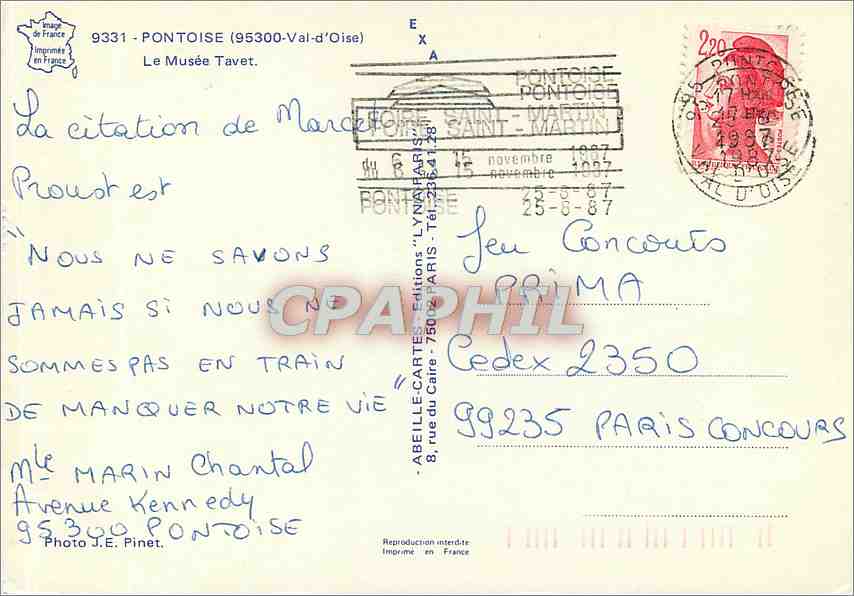 Image
de France
Imprimée
en France
9331 - PONTOISE (95300-Val-d'Oise)
Le Musée Tavet.
La citation de Marcel
Proust est
"NOUS NE SAVONS
JAMAIS SI NOUS NE
SOMMES PAS EN TRAIN
DE MANQUER NOTRE VIE"
Mle MARIN Chantal
Avenue Kennedy
95300 PONTOISE
Photo J.E. Pinet.
EXA
- ABEILLE-CARTES - Editions "LYNA-PARIS"
8, rue du Caire - 75002 PARIS - Tél. 236.41.28
Reproduction interdite
Imprimé en France
PONTOISE
PONTOISE
FOIRE SAINT - MARTIN
FOIRE SAINT - MARTIN
du 6 15 novembre 1987
du 6 15 novembre 1987
PONTOISE 25-8-87
PONTOISE 25-8-87
2,20
95 PONTOISE
17 H
1987
VAL D'OISE
Jeu Concours
PRIMA
Cedex 2350
99235 PARIS CONCOURS
CPAPHIL